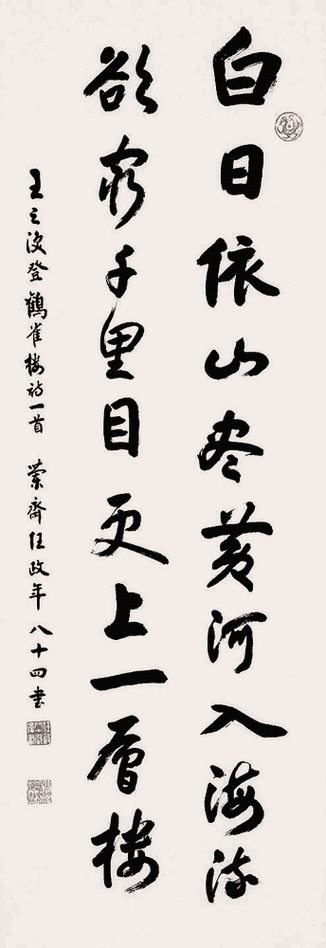 白日依山尽黄河入海流
欲穷千里目更上一层楼
王之涣登鹳雀楼诗一首 兰斋任政年八十四书